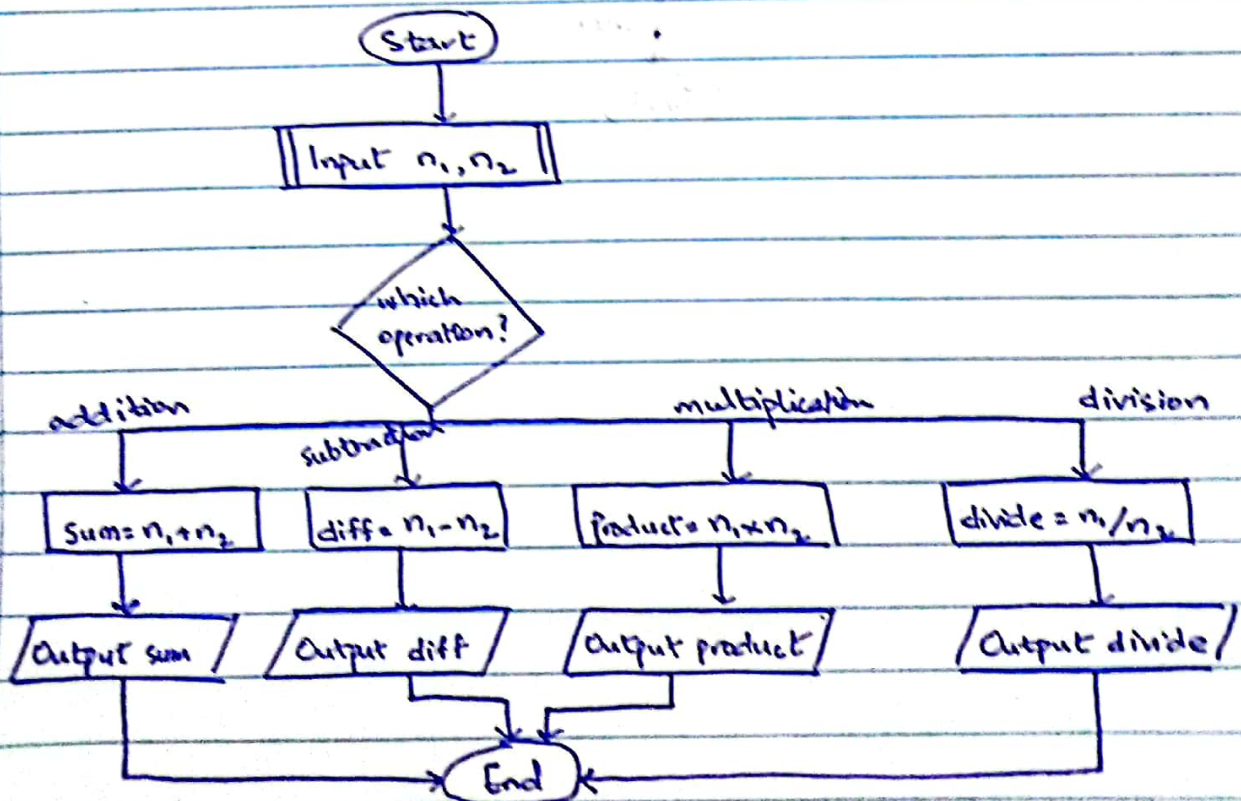 Start
Input n₁, n₂
which
operation?
addition
subtraction
multiplication
division
Sum = n₁ + n₂
diff = n₁ - n₂
Product = n₁ × n₂
divide = n₁ / n₂
Output sum
Output diff
Output product
Output divide
End